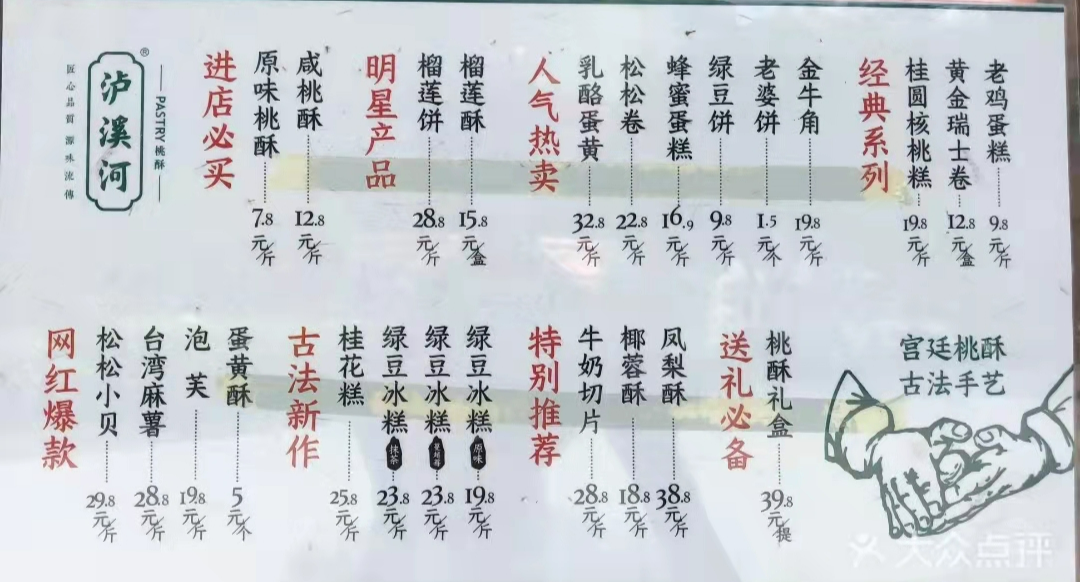 匠心品質 源味流傳
泸溪河
®
PASTRY 桃酥
进店必买
原味桃酥 7.8元/斤
咸桃酥 12.8元/斤
明星产品
榴莲饼 28.8元/斤
榴莲酥 15.8元/盒
人气热卖
乳酪蛋黄 32.8元/斤
松松卷 22.8元/斤
蜂蜜蛋糕 16.9元/斤
绿豆饼 9.8元/斤
老婆饼 1.5元/个
金牛角 19.8元/斤
经典系列
桂圆核桃糕 19.8元/斤
黄金瑞士卷 12.8元/盒
老鸡蛋糕 9.8元/斤
网红爆款
松松小贝 29.8元/斤
台湾麻薯 28.8元/斤
泡芙 19.8元/斤
蛋黄酥 5元/个
古法新作
桂花糕 25.8元/斤
绿豆冰糕 抹茶 23.8元/斤
绿豆冰糕 23.8元/斤
绿豆冰糕 原味 19.8元/斤
特别推荐
牛奶切片 28.8元/斤
椰蓉酥 18.8元/斤
凤梨酥 38.8元/斤
送礼必备
桃酥礼盒 39.8元/提
宫廷桃酥
古法手艺
大众点评